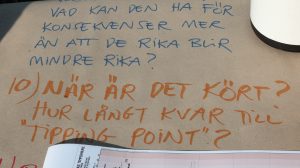 VAD KAN DEN HA FÖR
KONSEKVENSER MER
ÄN ATT DE RIKA BLIR
MINDRE RIKA?
10) NÄR ÄR DET KÖRT?
HUR LÅNGT KVAR TILL
"TIPPING POINT"?